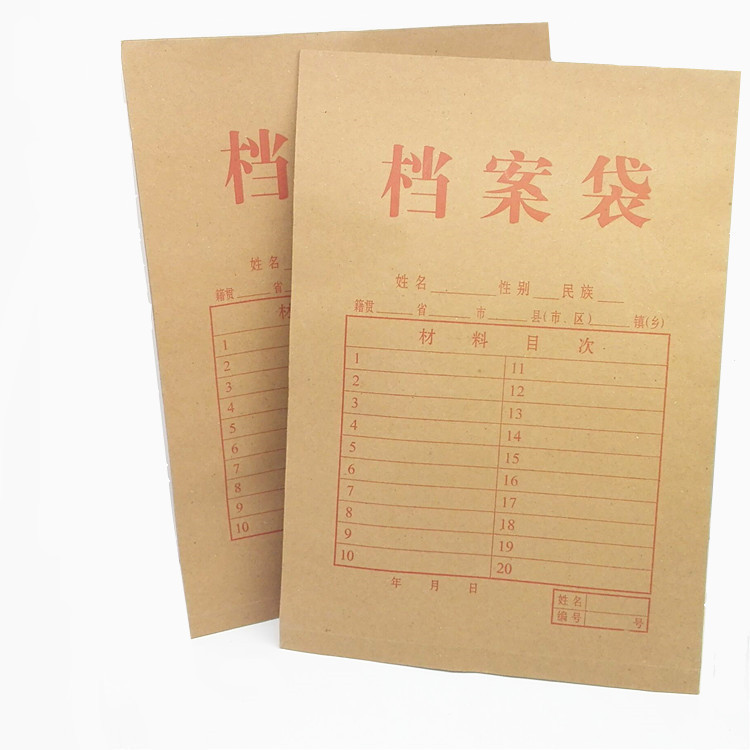 档案袋
姓名______ 性别___民族___
籍贯____省____市____县(市、区)____镇(乡)
材料目次
1 11
2 12
3 13
4 14
5 15
6 16
7 17
8 18
9 19
10 20
年 月 日
姓名
编号 号
档
姓名
籍贯____省
材
1
2
3
4
5
6
7
8
9
10